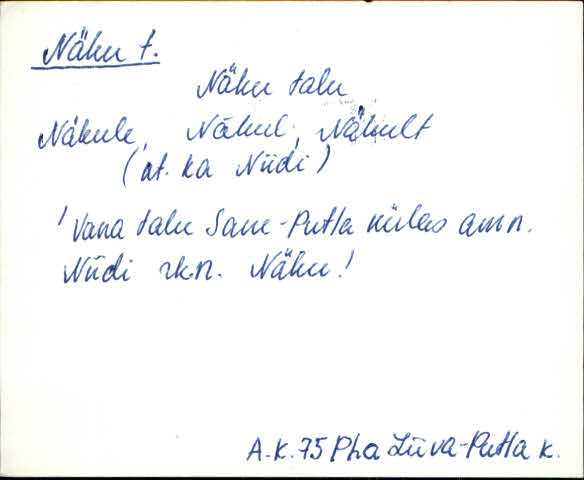 Nähu t.
Nähu talu
Nähule, Nähul, Nähult
(vt. ka Niidi)
'Vana talu Saue-Putla külas amn.
Niidi rkn. Nähu!
A.K. 75 Pha Liiva-Putla k.